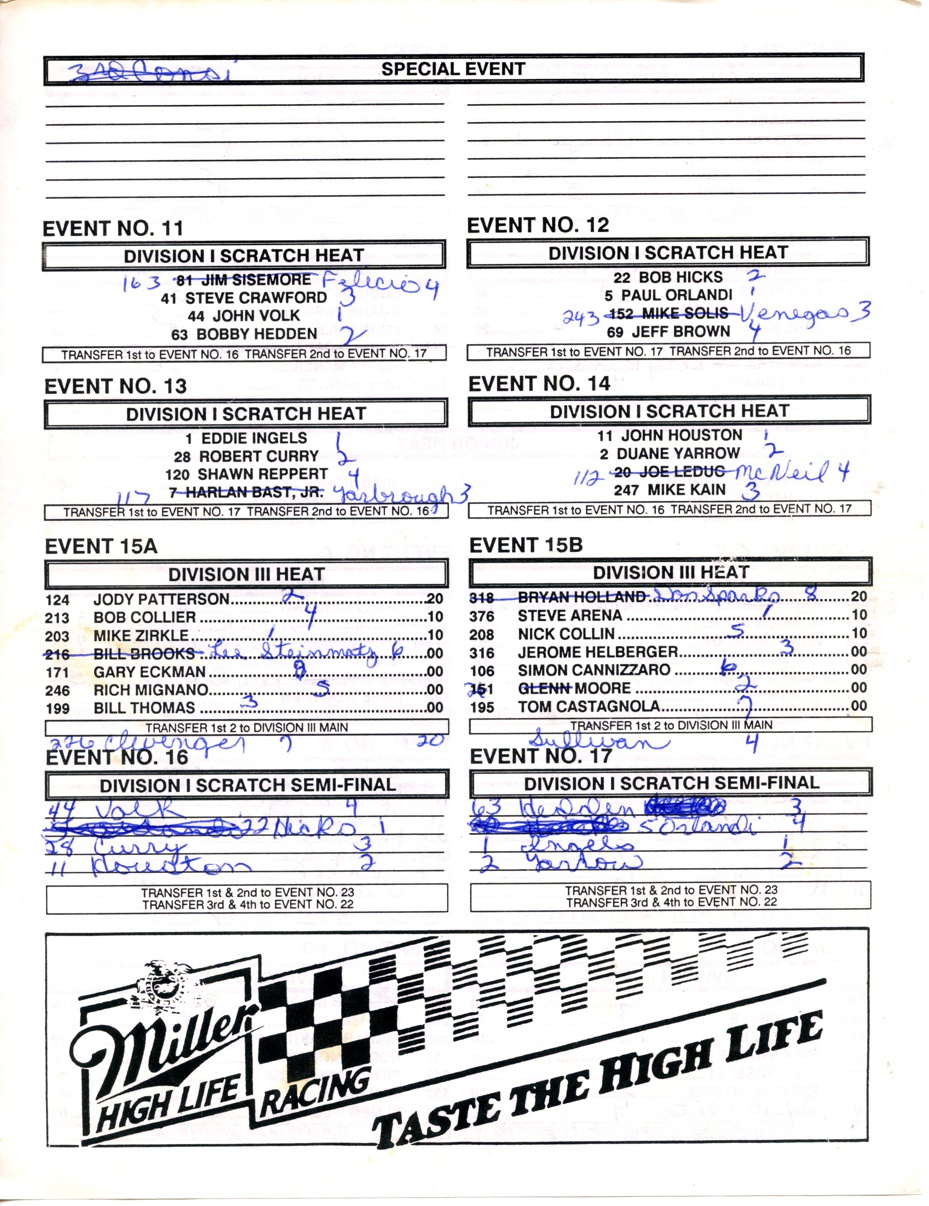 3rd Consi SPECIAL EVENT
EVENT NO. 11
DIVISION I SCRATCH HEAT
163 81 JIM SISEMORE Felicio 4
41 STEVE CRAWFORD 3
44 JOHN VOLK 1
63 BOBBY HEDDEN 2
TRANSFER 1st to EVENT NO. 16 TRANSFER 2nd to EVENT NO. 17
EVENT NO. 12
DIVISION I SCRATCH HEAT
22 BOB HICKS 2
5 PAUL ORLANDI 1
243 152 MIKE SOLIS Venegas 3
69 JEFF BROWN 4
TRANSFER 1st to EVENT NO. 17 TRANSFER 2nd to EVENT NO. 16
EVENT NO. 13
DIVISION I SCRATCH HEAT
1 EDDIE INGELS 1
28 ROBERT CURRY 2
120 SHAWN REPPERT 4
117 7 HARLAN BAST, JR. Yarbrough 3
TRANSFER 1st to EVENT NO. 17 TRANSFER 2nd to EVENT NO. 16
EVENT NO. 14
DIVISION I SCRATCH HEAT
11 JOHN HOUSTON 1
2 DUANE YARROW 2
112 20 JOE LEDUC McNeil 4
247 MIKE KAIN 3
TRANSFER 1st to EVENT NO. 16 TRANSFER 2nd to EVENT NO. 17
EVENT 15A
DIVISION III HEAT
124 JODY PATTERSON 2 20
213 BOB COLLIER 4 10
203 MIKE ZIRKLE 1 10
216 BILL BROOKS Lee Steinmatz 6 .00
171 GARY ECKMAN 8 .00
246 RICH MIGNANO 5 .00
199 BILL THOMAS 3 .00
TRANSFER 1st 2 to DIVISION III MAIN
226 Clevenger 7 20
EVENT 15B
DIVISION III HEAT
318 BRYAN HOLLAND Don Sparks 8 20
376 STEVE ARENA 1 10
208 NICK COLLIN 5 10
316 JEROME HELBERGER 3 .00
106 SIMON CANNIZZARO 6 .00
GLENN MOORE 2 .00
195 TOM CASTAGNOLA 7 .00
TRANSFER 1st 2 to DIVISION III MAIN
Sullivan 4
EVENT NO. 16
DIVISION I SCRATCH SEMI-FINAL
44 Volk 4
22 Hicks 1
28 Curry 3
11 Houston 2
TRANSFER 1st & 2nd to EVENT NO. 23
TRANSFER 3rd & 4th to EVENT NO. 22
EVENT NO. 17
DIVISION I SCRATCH SEMI-FINAL
63 Hedden 3
5 Orlandi 4
1 Ingels 1
2 Yarrow 2
TRANSFER 1st & 2nd to EVENT NO. 23
TRANSFER 3rd & 4th to EVENT NO. 22
Miller
HIGH LIFE RACING
TASTE THE HIGH LIFE